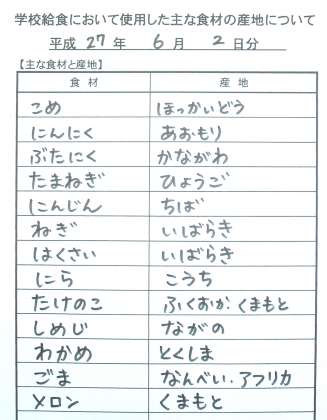 学校給食において使用した主な食材の産地について
平成 27 年 6 月 2 日分
【主な食材と産地】
食材 産地
こめ ほっかいどう
にんにく あおもり
ぶたにく かながわ
たまねぎ ひょうご
にんじん ちば
ねぎ いばらき
はくさい いばらき
にら こうち
たけのこ ふくおか.くまもと
しめじ ながの
わかめ とくしま
ごま なんべい.アフリカ
メロン くまもと